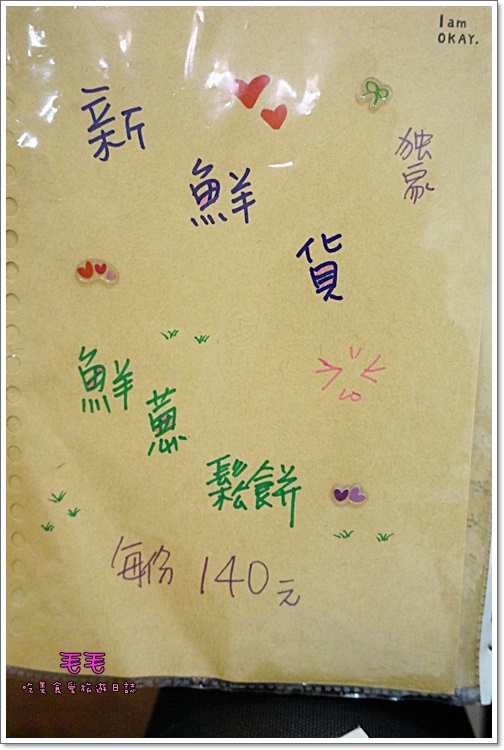 I am
OKAY.
独家
新鮮貨
鮮蔥
鬆餅
每份 140元
毛毛
吃美食兼旅遊日誌